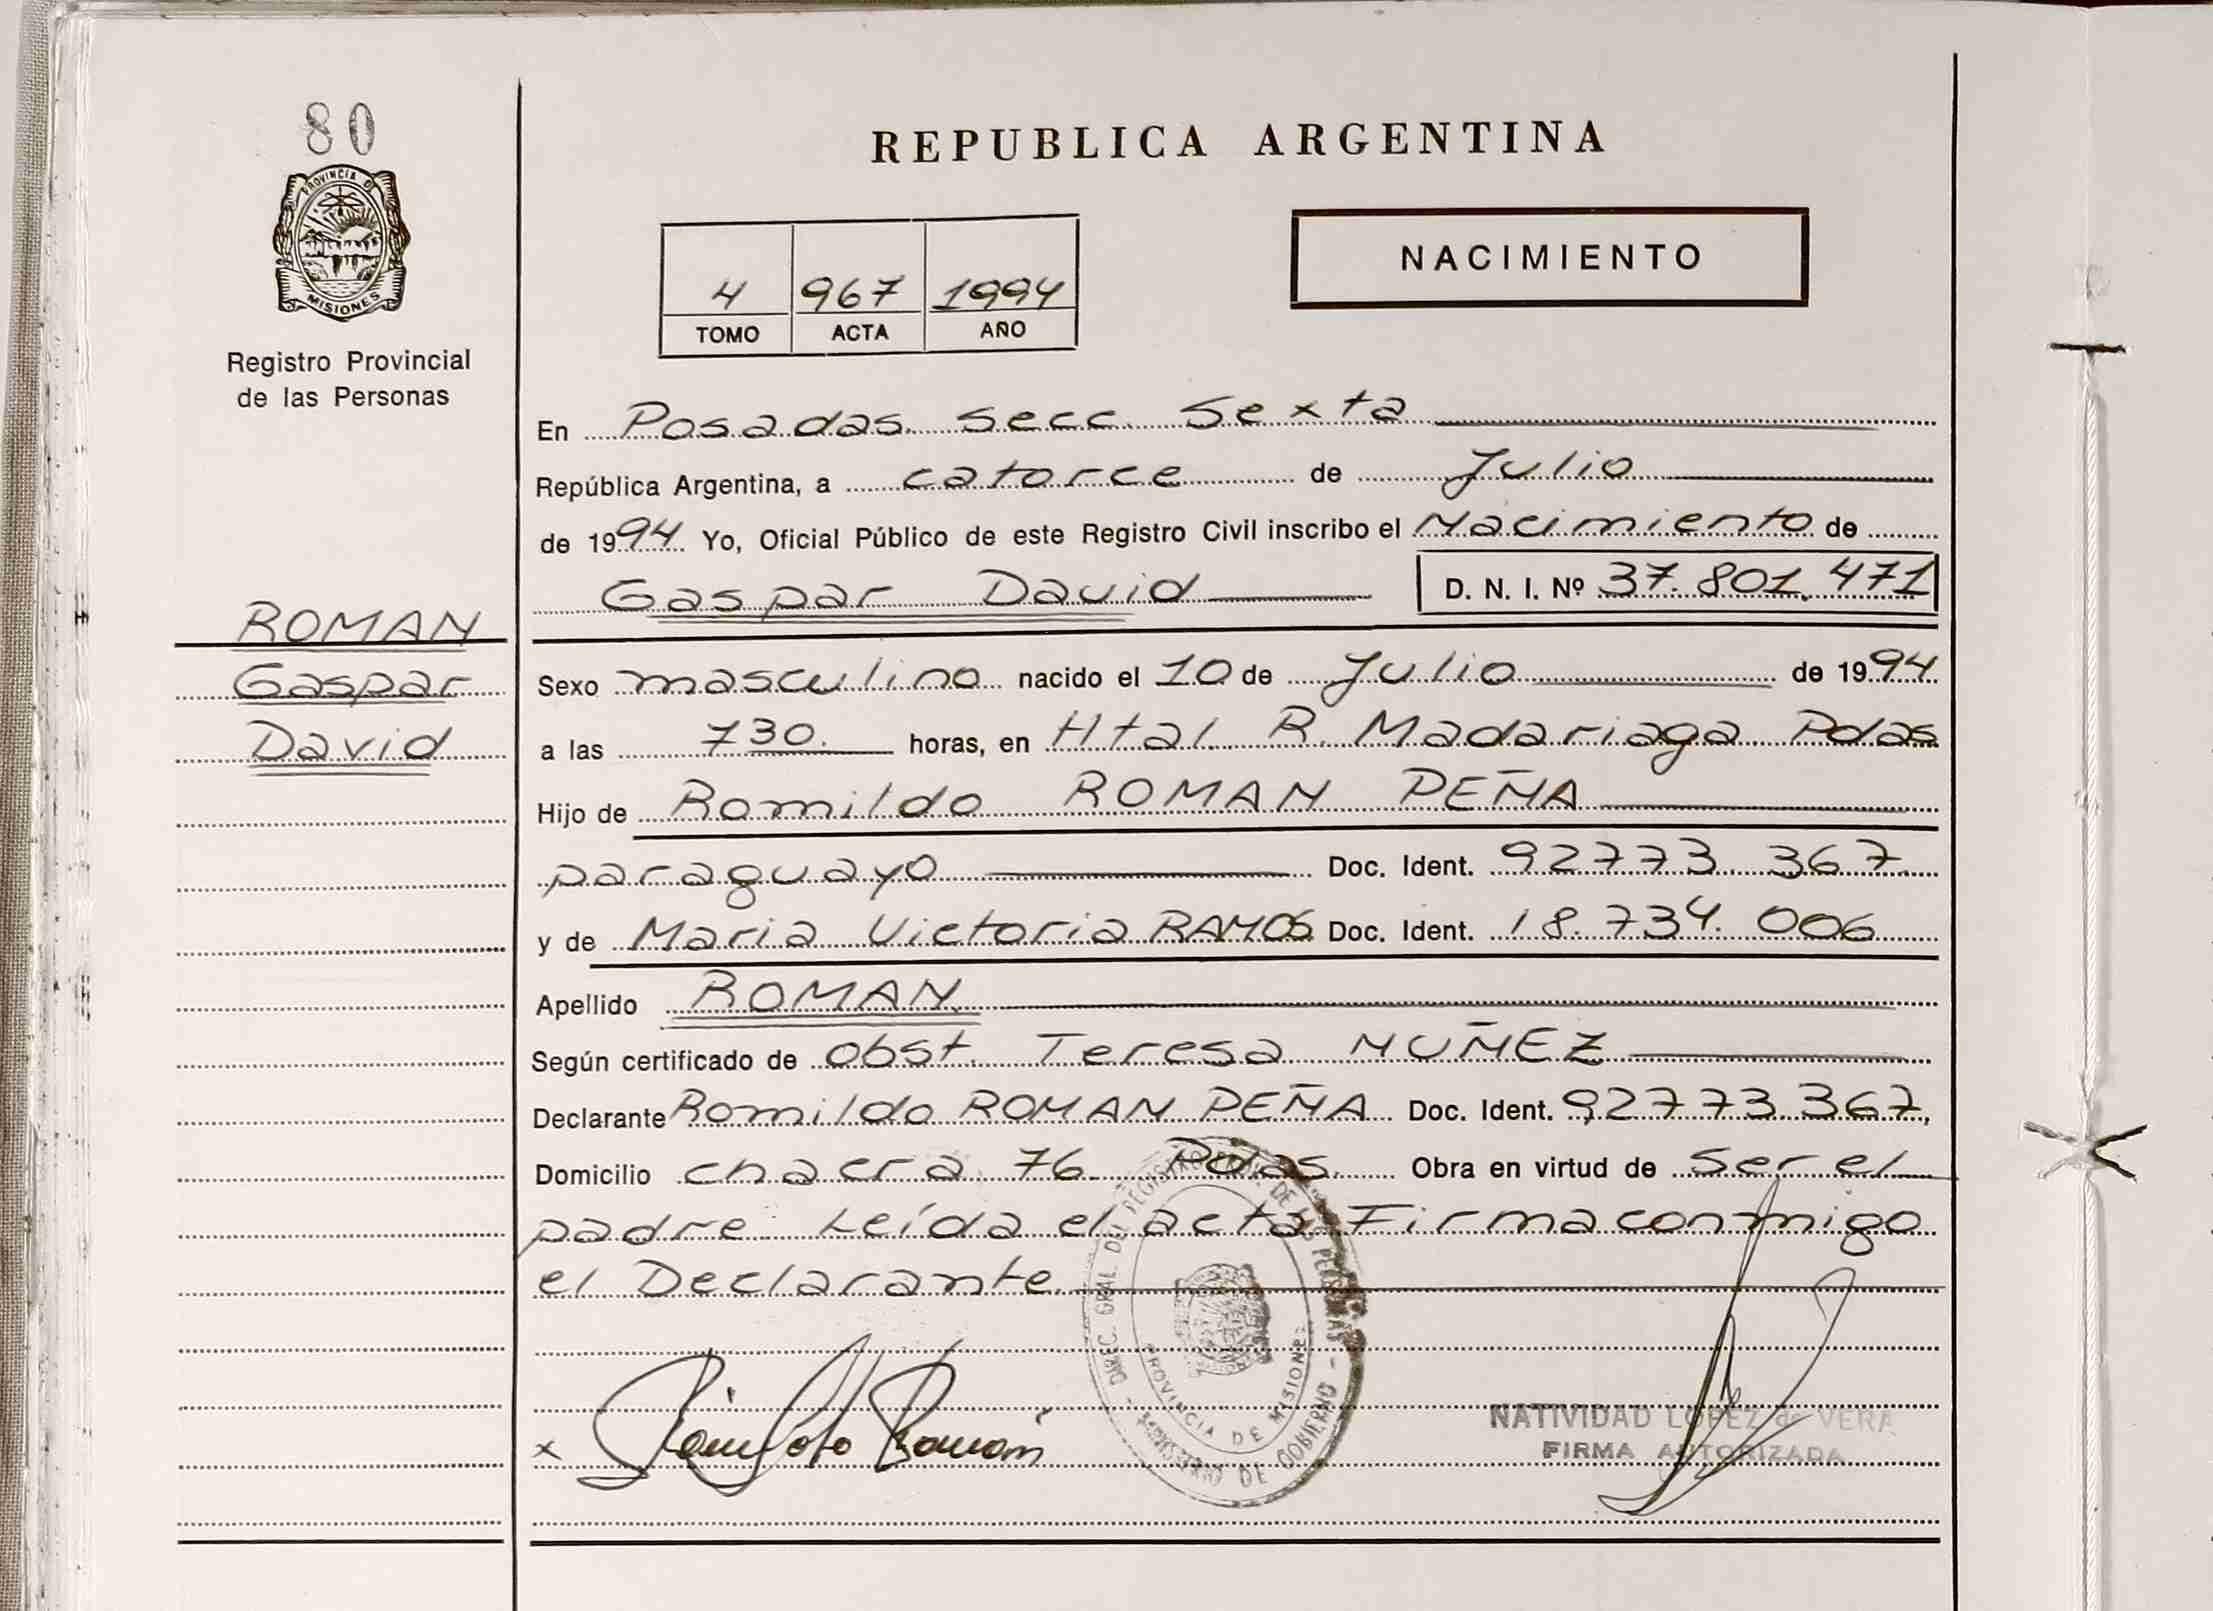 80
PROVINCIA D
MISIONES
Registro Provincial
de las Personas
ROMAN
Gaspar
David
REPUBLICA ARGENTINA
NACIMIENTO
4 967 1994
TOMO ACTA AÑO
En Posadas Secc. Sexta
República Argentina, a catorce de Julio
de 1994. Yo, Oficial Público de este Registro Civil inscribo el Nacimiento de
Gaspar David D. N. I. Nº 37.801.471
Sexo masculino nacido el 10 de Julio de 1994.
a las 730. horas, en Htal R. Madariaga Pdas
Hijo de Romildo ROMAN PEÑA
paraguayo Doc. Ident. 92773.367.
y de Maria Victoria RAMOS Doc. Ident. 18.734.006
Apellido ROMAN
Según certificado de obst. Teresa NUÑEZ
Declarante Romildo ROMAN PEÑA Doc. Ident. 92773367,
Domicilio chacra 76 Pdas. Obra en virtud de Ser el
padre. Leída el acta Firma conmigo
el Declarante
DIREC. GRAL. DEL REGISTRO PROV. DE LAS PERSONAS - MINISTERIO DE GOBIERNO -
PROVINCIA DE MISIONES
x Romildo Roman
NATIVIDAD LOPEZ de VERA
FIRMA AUTORIZADA